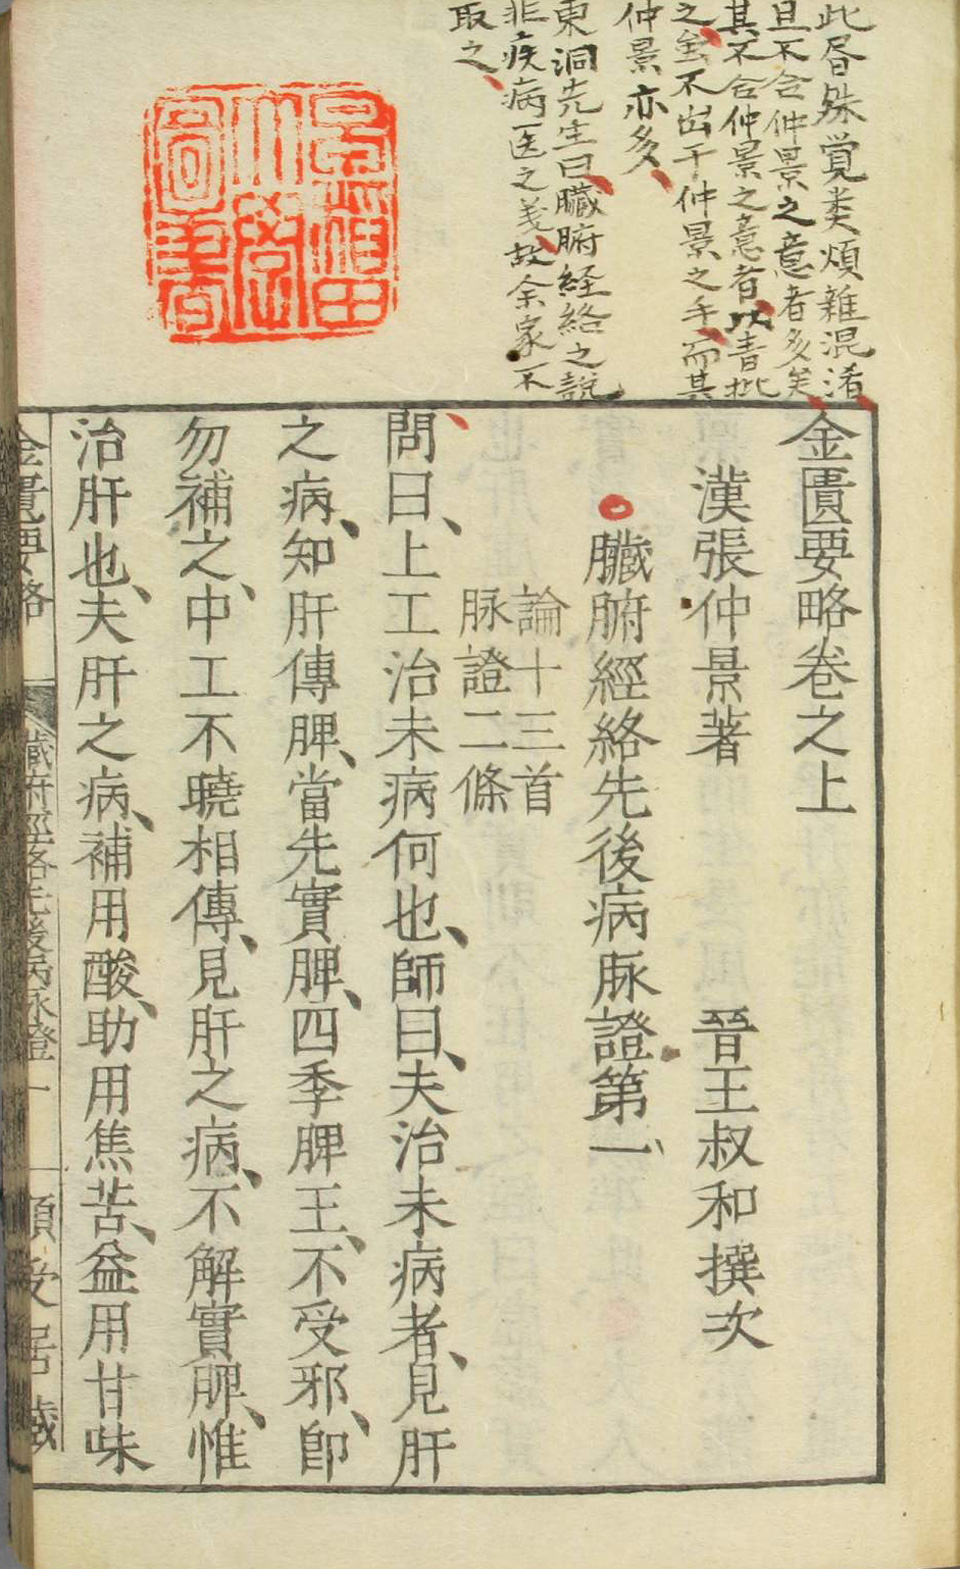 此書殊覚煩雑混淆
且不合仲景之意者多矣
其不合仲景之意者以青批
之矣不出于仲景之手而其
仲景亦多
東洞先生曰臓腑経絡之説
非疾病医之義故余家不
取之
早稲田
大學
圖書
金匱要略卷之上
漢張仲景著　晉王叔和撰次
臟腑經絡先後病脉證第一
論十三首
脉證二條
問曰、上工治未病何也、師曰、夫治未病者、見肝
之病、知肝傳脾、當先實脾、四季脾王、不受邪、卽
勿補之、中工不曉相傳、見肝之病、不解實脾、惟
治肝也、夫肝之病、補用酸、助用焦苦、益用甘味
金匱要略
臟腑經絡先後病脉證一
順受居藏